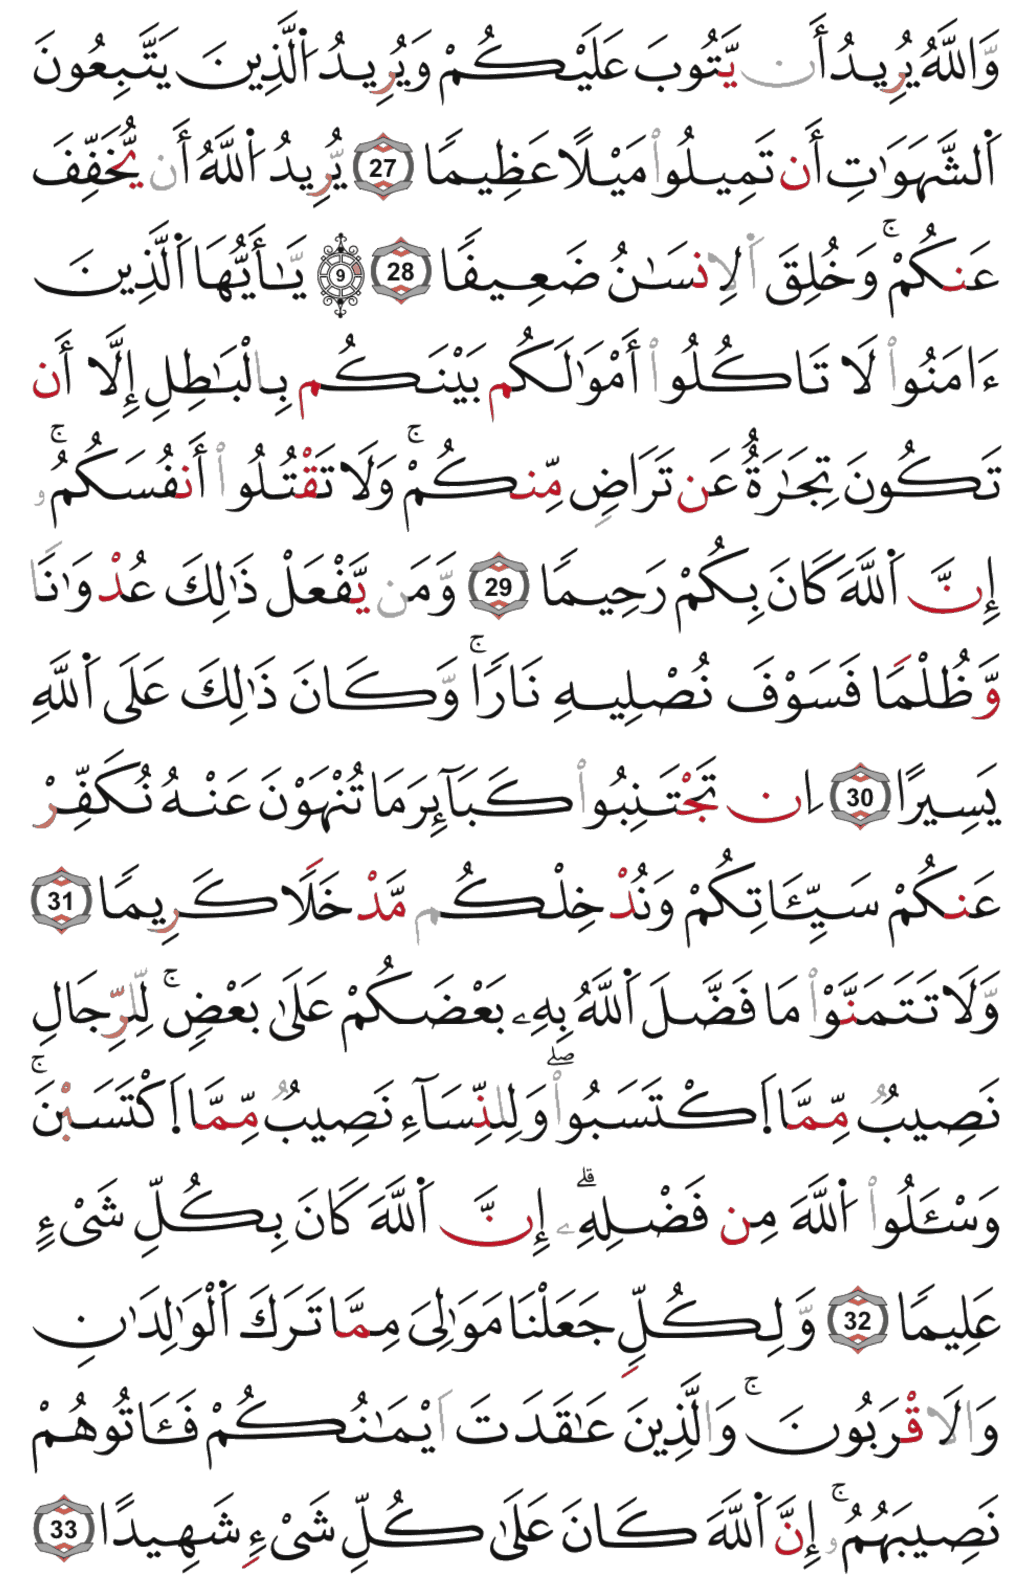 وَّاللَّهُ يُرِيدُ أَن يَّتُوبَ عَلَيْكُمْ وَيُرِيدُ اَلَّذِينَ يَتَّبِعُونَ
اَلشَّهَوَٰتِ أَن تَمِيلُواْ مَيْلًا عَظِيمًا 27 يُّرِيدُ اَللَّهُ أَن يُّخَفِّفَ
عَنكُمْۚ وَخُلِقَ اَلِانسَٰنُ ضَعِيفًا 28 9 يَّٰأَيُّهَا اَلَّذِينَ
ءَامَنُواْ لَا تَاكُلُواْ أَمْوَٰلَكُم بَيْنَكُم بِالْبَٰطِلِ إِلَّا أَن
تَكُونَ تِجَٰرَةٌ عَن تَرَاضٖ مِّنكُمْۚ وَلَا تَقْتُلُواْ أَنفُسَكُمُۥۚ
إِنَّ اَللَّهَ كَانَ بِكُمْ رَحِيمًا 29 وَّمَن يَّفْعَلْ ذَٰلِكَ عُدْوَٰنًا
وَّظُلْمًا فَسَوْفَ نُصْلِيهِ نَارًاۚ وَّكَانَ ذَٰلِكَ عَلَى اَللَّهِ
يَسِيرًا 30 اِن تَجْتَنِبُواْ كَبَآئِرَ مَا تُنْهَوْنَ عَنْهُ نُكَفِّرْ
عَنكُمْ سَيِّـَٔاتِكُمْ وَنُدْخِلْكُم مَّدْخَلًا كَرِيمًا 31
وَّلَا تَتَمَنَّوْاْ مَا فَضَّلَ اَللَّهُ بِهِۦ بَعْضَكُمْ عَلَىٰ بَعْضٖۚ لِّلرِّجَالِ
نَصِيبٌ مِّمَّا اَكْتَسَبُواْۖ وَلِلنِّسَآءِ نَصِيبٌ مِّمَّا اَكْتَسَبْنَۚ
وَسْـَٔلُواْ اَللَّهَ مِن فَضْلِهِۦۗ إِنَّ اَللَّهَ كَانَ بِكُلِّ شَىْءٍ
عَلِيمًا 32 وَّلِكُلّٖ جَعَلْنَا مَوَٰلِىَ مِمَّا تَرَكَ اَلْوَٰلِدَٰنِ
وَالَاقْرَبُونَۚ وَالَّذِينَ عَٰقَدَتَ اَيْمَٰنُكُمْ فَـَٔاتُوهُمْ
نَصِيبَهُمُۥۚ إِنَّ اَللَّهَ كَانَ عَلَىٰ كُلِّ شَىْءٖ شَهِيدًا 33